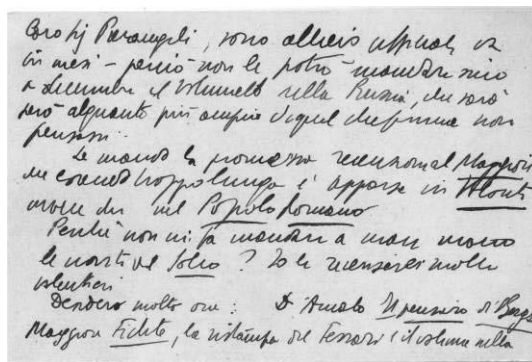 Caro Sig Pierangeli, sono allievo ufficiale da
tre mesi – perciò non le potrò mandare sino
a dicembre il volumetto sulla Russia, che sarà
però alquanto più ampio di quel che prima non
pensassi.
Le mando la promessa recensione al Maggiore
che essendo troppo lunga è apparsa in
nel Popolo Romano
Perché non mi fa mandare a mano mano
le novità del Solco? Io le recensirei molto
volentieri
Desidero molto ora: D'Amato Il pensiero di Berg
Maggiore Fichte, la ristampa del Ferrari e il volume sulla